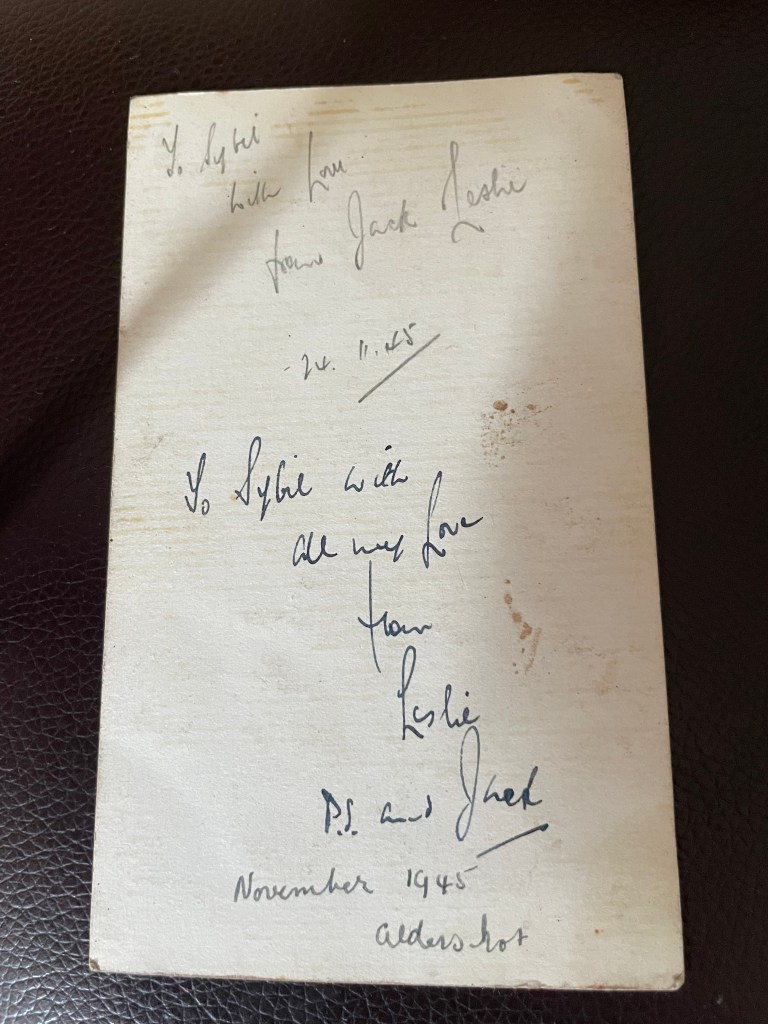 To Sybil
with Love
from Jack Leslie
24. 11. 45
To Sybil with
all my Love
from
Leslie
P.S. and Jack
November 1945
Aldershot